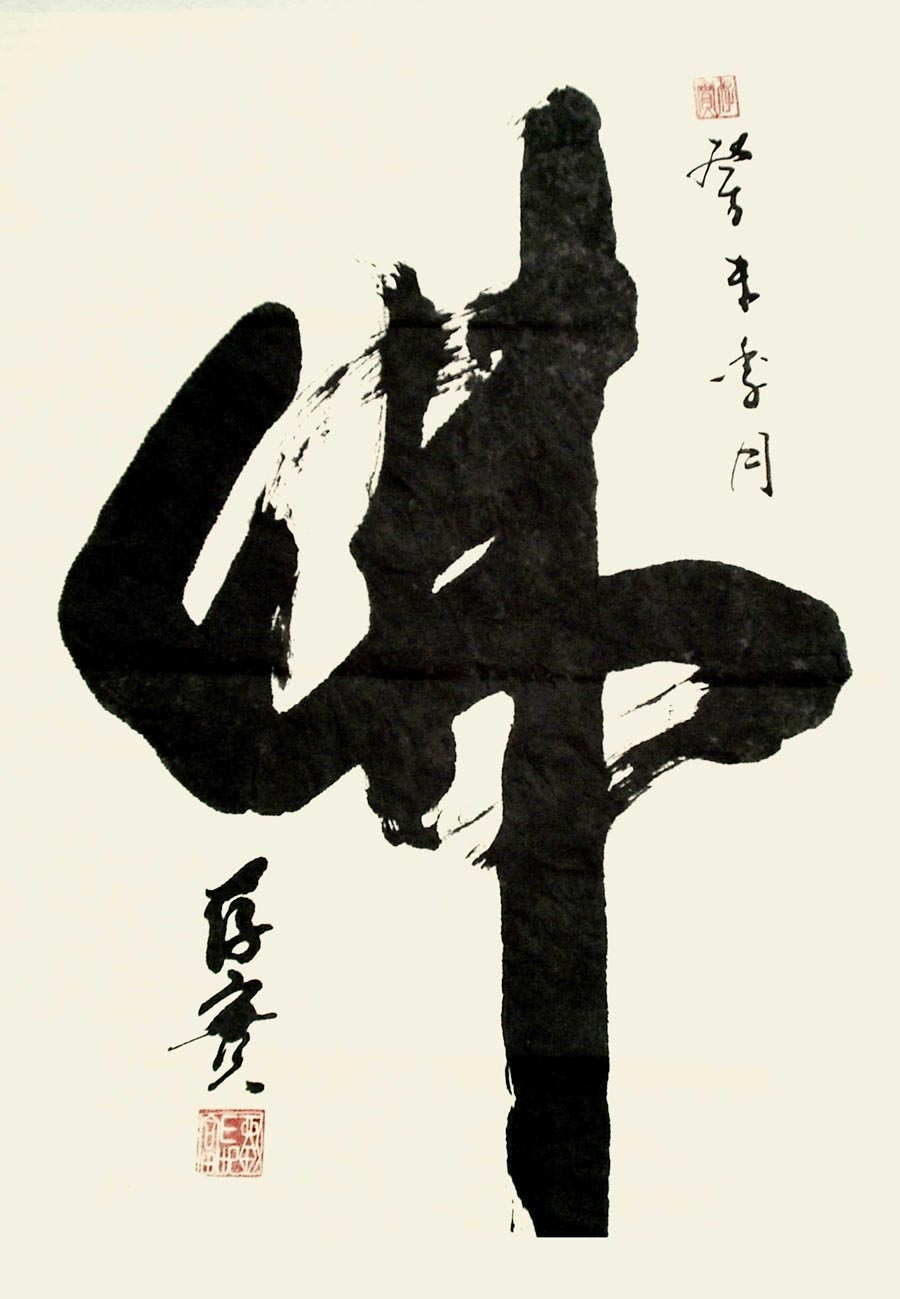 癸未季月
佛
存實